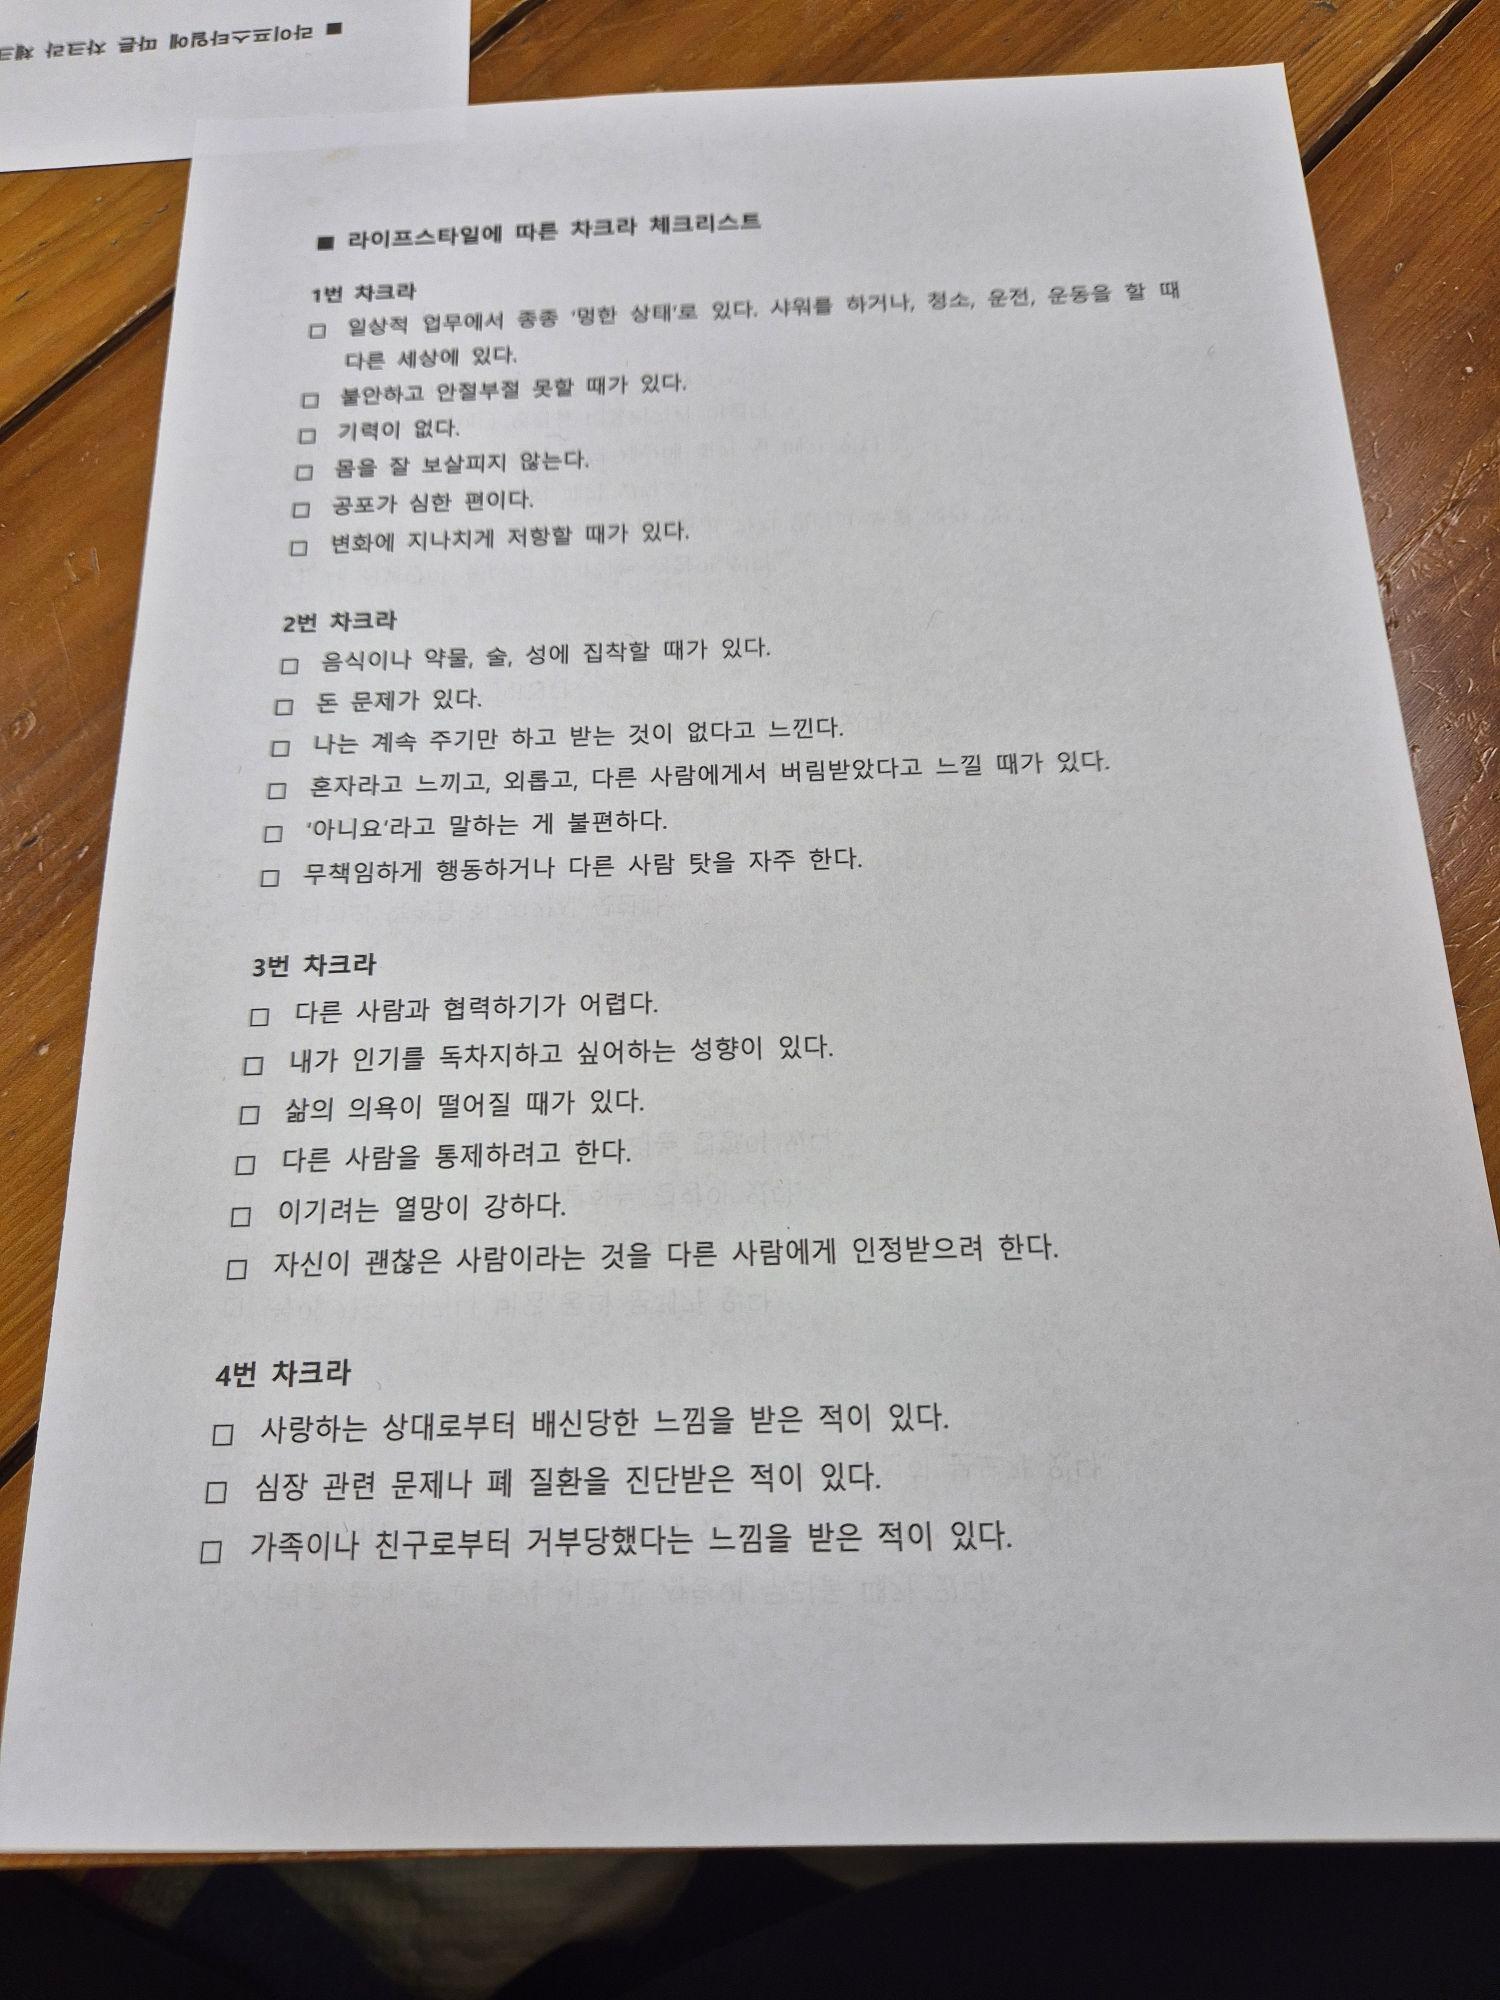 ■ 라이프스타일에 따른 차크라 체크
■ 라이프스타일에 따른 차크라 체크리스트
1번 차크라
□ 일상적 업무에서 종종 '멍한 상태'로 있다. 샤워를 하거나, 청소, 운전, 운동을 할 때
다른 세상에 있다.
□ 불안하고 안절부절 못할 때가 있다.
□ 기력이 없다.
□ 몸을 잘 보살피지 않는다.
□ 공포가 심한 편이다.
□ 변화에 지나치게 저항할 때가 있다.
2번 차크라
□ 음식이나 약물, 술, 성에 집착할 때가 있다.
□ 돈 문제가 있다.
□ 나는 계속 주기만 하고 받는 것이 없다고 느낀다.
□ 혼자라고 느끼고, 외롭고, 다른 사람에게서 버림받았다고 느낄 때가 있다.
□ '아니요'라고 말하는 게 불편하다.
□ 무책임하게 행동하거나 다른 사람 탓을 자주 한다.
3번 차크라
□ 다른 사람과 협력하기가 어렵다.
□ 내가 인기를 독차지하고 싶어하는 성향이 있다.
□ 삶의 의욕이 떨어질 때가 있다.
□ 다른 사람을 통제하려고 한다.
□ 이기려는 열망이 강하다.
□ 자신이 괜찮은 사람이라는 것을 다른 사람에게 인정받으려 한다.
4번 차크라
□ 사랑하는 상대로부터 배신당한 느낌을 받은 적이 있다.
□ 심장 관련 문제나 폐 질환을 진단받은 적이 있다.
□ 가족이나 친구로부터 거부당했다는 느낌을 받은 적이 있다.